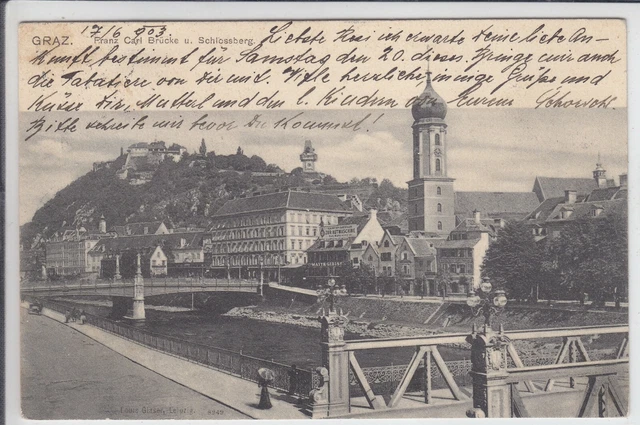 17/6 903.
GRAZ. Franz Carl Brücke u. Schlossberg.
Liebste Resi ich erwarte deine liebe An-
kunft bestimmt für Samstag den 20. dieses. Bringe mir auch
die Tabatiere von dir mit. Bitte herzliche, innige Grüße und
Küsse dir, Mutterl und den l. Kindern von Eurem
Bitte schreibe mir bevor Du kommst!